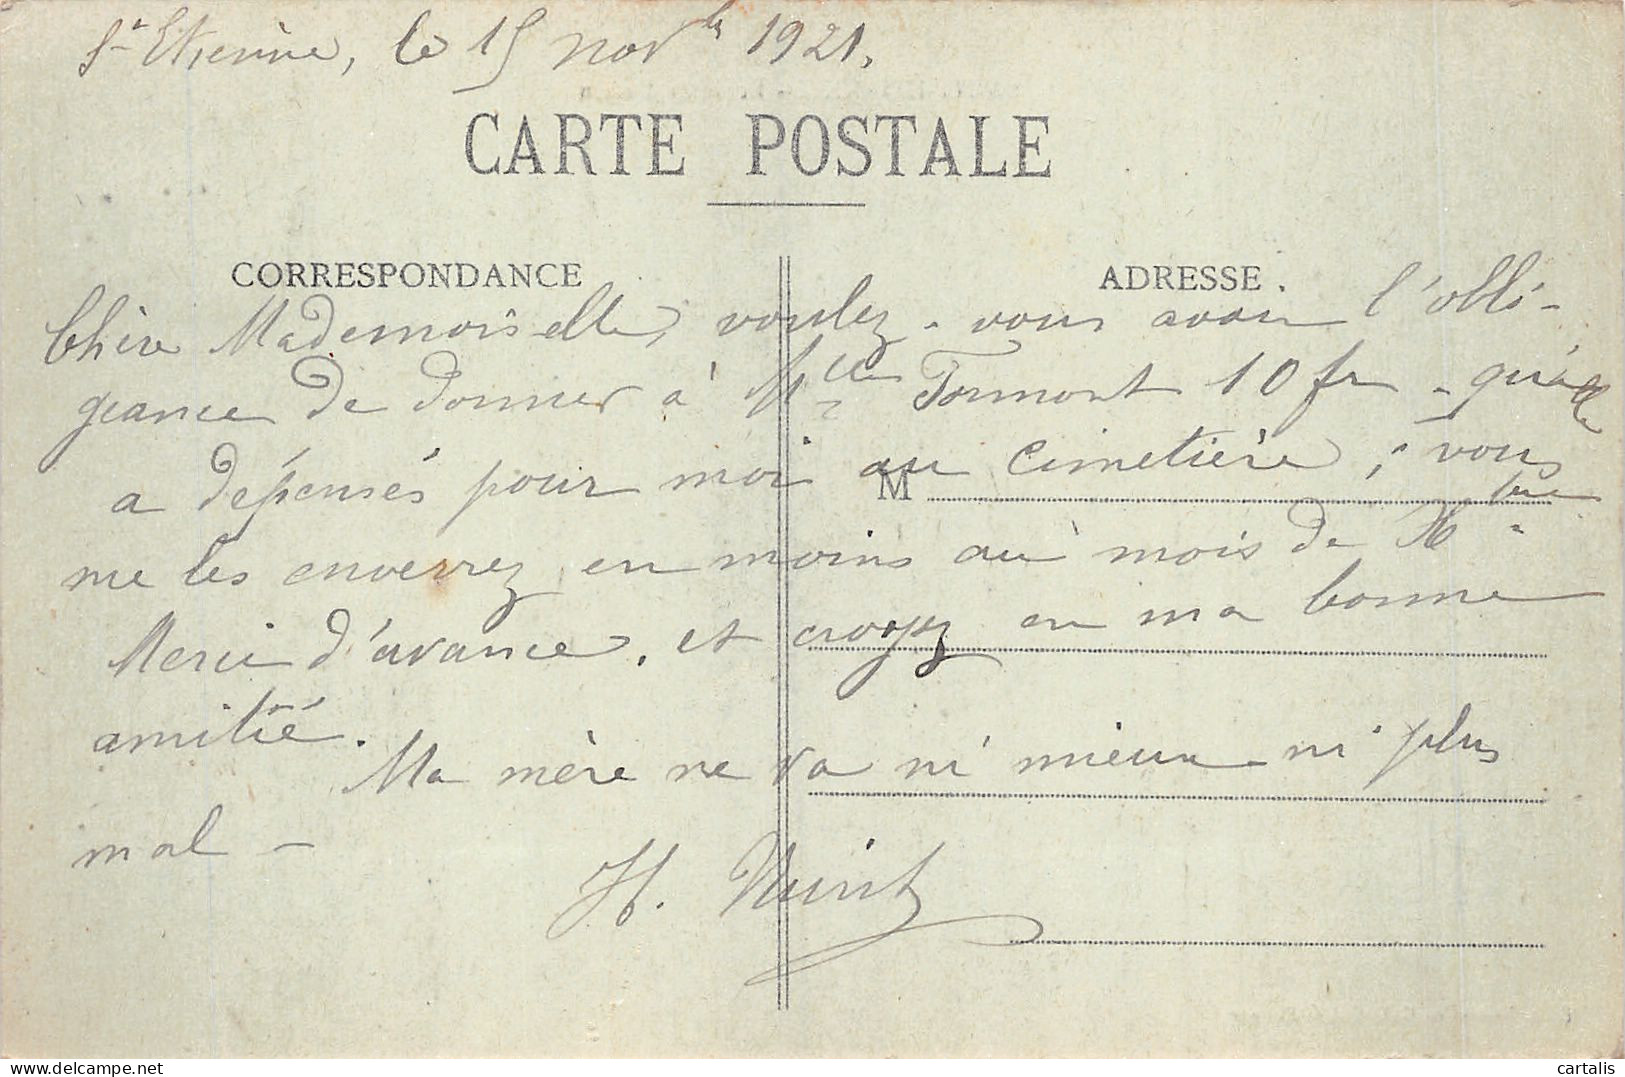 St Etienne, le 15 Novbre 1921.
CARTE POSTALE
CORRESPONDANCE
ADRESSE.
Chère Mademoiselle, voulez-vous avoir l'obli-
geance de donner à Mlle Formont 10 fr - qu'elle
a dépensés pour moi au cimetière, vous
M
me les enverrez en moins au mois de Xbre
Merci d'avance, et croyez en ma bonne
amitié.
Ma mère ne va ni mieux ni plus
mal -
H.
cartalis